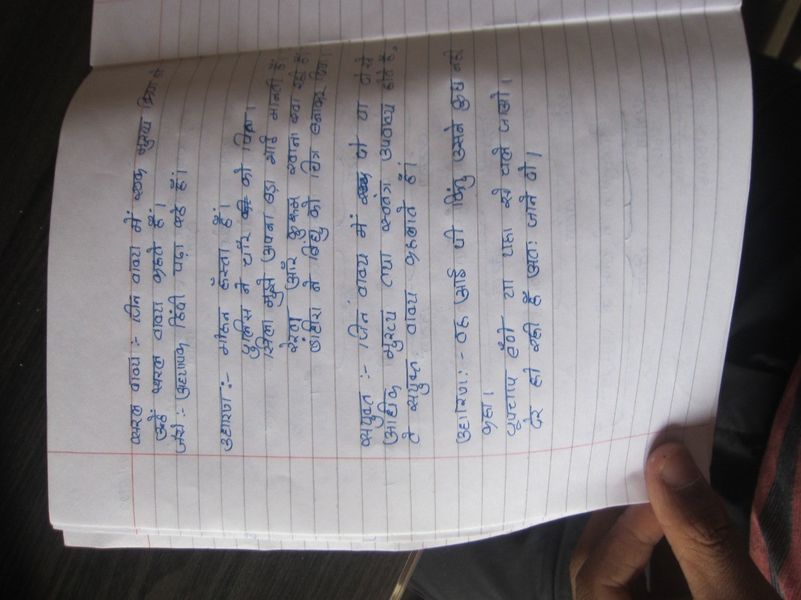 सरल वाक्य :- जिन वाक्य में एक मुख्य क्रिया हो
उन्हें सरल वाक्य कहते हैं।
जैसे :- अध्यापक हिंदी पढ़ा रहे हैं।
उदाहरण :- मोहन हँसता है।
पुलिस ने चोर को पिटा।
मुझे अपना बड़ा भाई मानती है।
और कुकुम खाना खा रहे हैं।
ने विधु को चित्र बनाकर दिया।
सयुक्त :- जिन वाक्य में दो या दो से
अधिक मुख्य तथा स्वतंत्र उपवाक्य होते है,
वे सयुक्त वाक्य कहलाते है।
उदाहरण :- वह आई थी किंतु उसने कुछ नही
कहा।
चुपचाप बैठो या यहा से चले जाओ।
देर हो रही है अतः जाने दो।